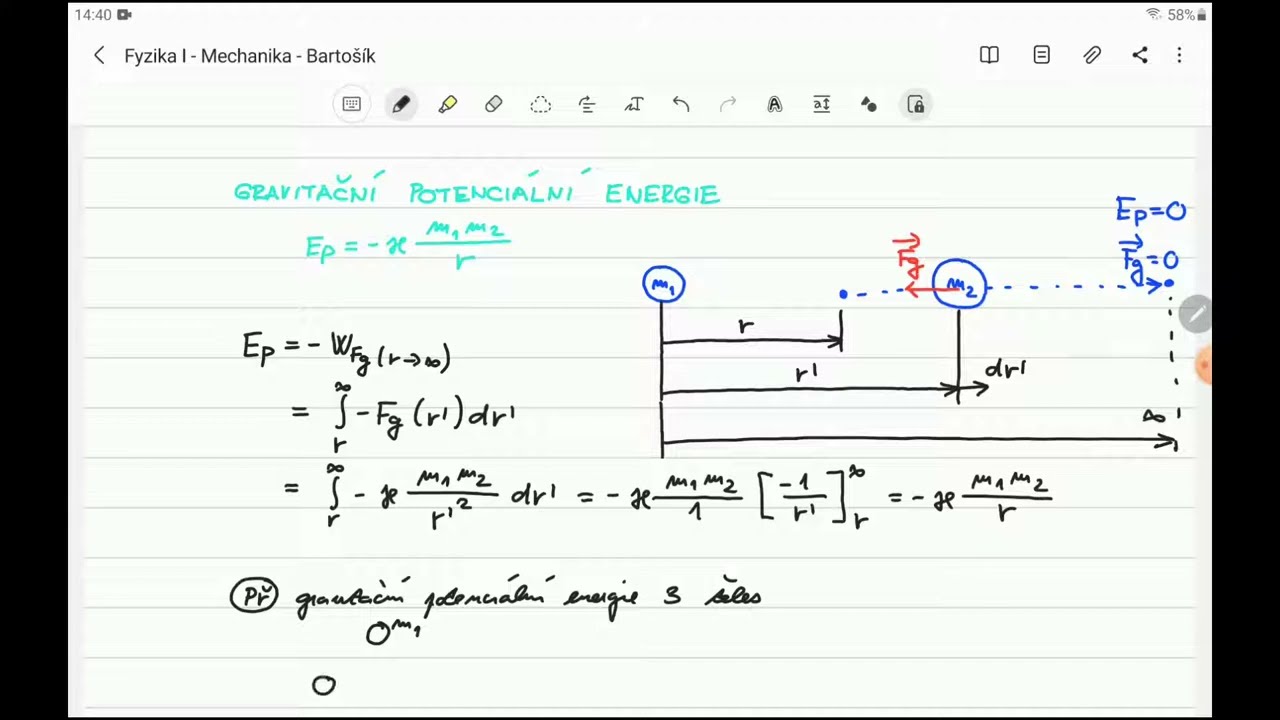 14:40 58%
Fyzika I - Mechanika - Bartošík
GRAVITAČNÍ POTENCIÁLNÍ ENERGIE
Ep = -ϰ m₁m₂/r
Ep=0
F⃗g=0
F⃗g
m₁ m₂
r
r' dr'
∞
Ep = - W_Fg(r→∞)
= ∫_r^∞ -Fg(r')dr'
= ∫_r^∞ -ϰ m₁m₂/r'² dr' = -ϰ m₁m₂/1 [-1/r']_r^∞ = -ϰ m₁m₂/r
Př gravitační potenciální energie 3 těles
m₁